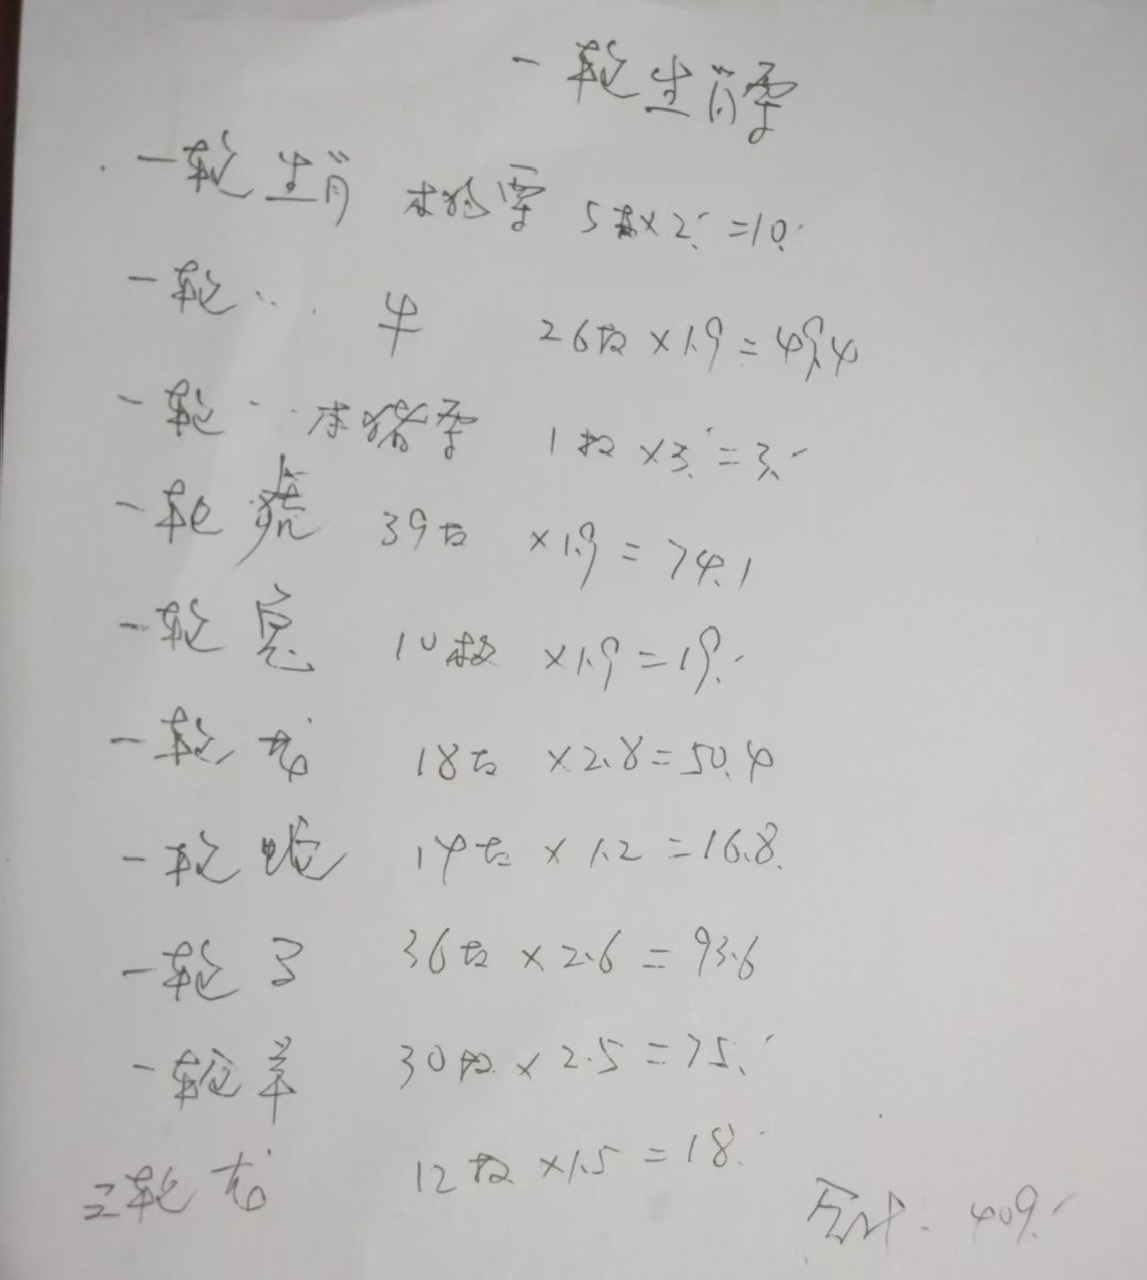 一轮生肖零
一轮生肖 本 零 5枚×2.=10.
一轮 .. ... 牛 26枚×1.9=49.4
一轮 .. .. 本猪零 1枚×3.=3.-
一轮 虎 39枚 ×1.9=74.1
一轮 兔 10枚 ×1.9=19.-
一轮 龙 18枚 ×2.8=50.4
一轮 蛇 14枚 ×1.2=16.8
一轮 马 36枚 ×2.6=93.6
一轮 羊 30枚 ×2.5=75.
二轮 龙 12枚 ×1.5=18.
合计: 409.